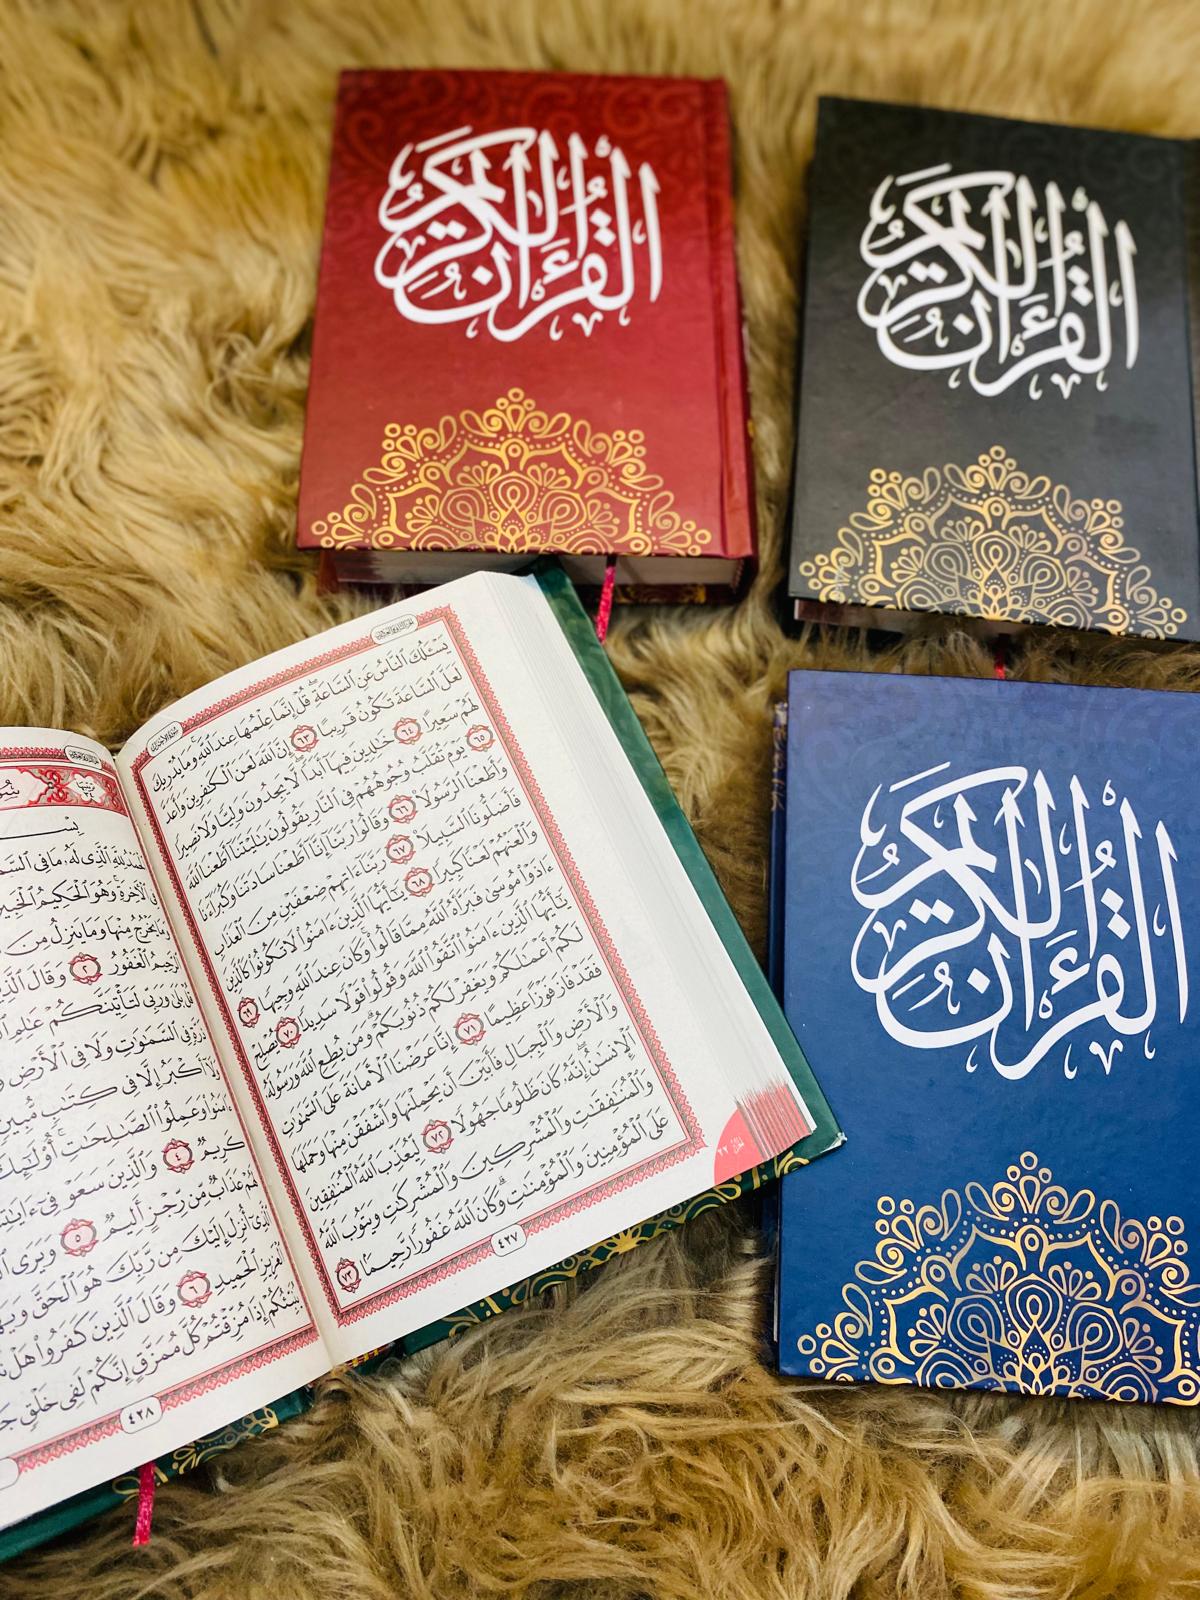 القرءان الكريم
القرءان الكريم
القرءان الكريم
يَسْـَٔلُكَ ٱلنَّاسُ عَنِ ٱلسَّاعَةِ ۖ قُلْ إِنَّمَا عِلْمُهَا عِندَ ٱللَّهِ ۚ وَمَا يُدْرِيكَ
لَعَلَّ ٱلسَّاعَةَ تَكُونُ قَرِيبًا ٦٣ إِنَّ ٱللَّهَ لَعَنَ ٱلْكَٰفِرِينَ وَأَعَدَّ
لَهُمْ سَعِيرًا ٦٤ خَٰلِدِينَ فِيهَآ أَبَدًا ۖ لَّا يَجِدُونَ وَلِيًّا وَلَا نَصِيرًا
٦٥ يَوْمَ تُقَلَّبُ وُجُوهُهُمْ فِى ٱلنَّارِ يَقُولُونَ يَٰلَيْتَنَآ أَطَعْنَا ٱللَّهَ
وَأَطَعْنَا ٱلرَّسُولَا۠ ٦٦ وَقَالُوا۟ رَبَّنَآ إِنَّآ أَطَعْنَا سَادَتَنَا وَكُبَرَآءَنَا
فَأَضَلُّونَا ٱلسَّبِيلَا۠ ٦٧ رَبَّنَآ ءَاتِهِمْ ضِعْفَيْنِ مِنَ ٱلْعَذَابِ
وَٱلْعَنْهُمْ لَعْنًا كَبِيرًا ٦٨ يَٰٓأَيُّهَا ٱلَّذِينَ ءَامَنُوا۟ لَا تَكُونُوا۟ كَٱلَّذِينَ
ءَاذَوْا۟ مُوسَىٰ فَبَرَّأَهُ ٱللَّهُ مِمَّا قَالُوا۟ ۚ وَكَانَ عِندَ ٱللَّهِ وَجِيهًا ٦٩
يَٰٓأَيُّهَا ٱلَّذِينَ ءَامَنُوا۟ ٱتَّقُوا۟ ٱللَّهَ وَقُولُوا۟ قَوْلًا سَدِيدًا ٧٠ يُصْلِحْ
لَكُمْ أَعْمَٰلَكُمْ وَيَغْفِرْ لَكُمْ ذُنُوبَكُمْ ۗ وَمَن يُطِعِ ٱللَّهَ وَرَسُولَهُۥ
فَقَدْ فَازَ فَوْزًا عَظِيمًا ٧١ إِنَّا عَرَضْنَا ٱلْأَمَانَةَ عَلَى ٱلسَّمَٰوَٰتِ
وَٱلْأَرْضِ وَٱلْجِبَالِ فَأَبَيْنَ أَن يَحْمِلْنَهَا وَأَشْفَقْنَ مِنْهَا وَحَمَلَهَا
ٱلْإِنسَٰنُ ۖ إِنَّهُۥ كَانَ ظَلُومًا جَهُولًا ٧٢ لِّيُعَذِّبَ ٱللَّهُ ٱلْمُنَٰفِقِينَ
وَٱلْمُنَٰفِقَٰتِ وَٱلْمُشْرِكِينَ وَٱلْمُشْرِكَٰتِ وَيَتُوبَ ٱللَّهُ
عَلَى ٱلْمُؤْمِنِينَ وَٱلْمُؤْمِنَٰتِ ۗ وَكَانَ ٱللَّهُ غَفُورًا رَّحِيمًۢا ٧٣
٤٢٧
٢٢
ٱلَّذِى لَهُۥ مَا فِى
فِى ٱلْءَاخِرَةِ ۚ وَهُوَ ٱلْحَكِيمُ ٱلْخَبِيرُ
وَمَا يَخْرُجُ مِنْهَا وَمَا يَنزِلُ مِنَ
ٱلرَّحِيمُ ٱلْغَفُورُ ٢ وَقَالَ
بَلَىٰ وَرَبِّى لَتَأْتِيَنَّكُمْ عَٰلِمِ
ذَرَّةٍ فِى ٱلسَّمَٰوَٰتِ وَلَا فِى ٱلْأَرْضِ
وَلَآ أَكْبَرُ إِلَّا فِى كِتَٰبٍ مُّبِينٍ
ءَامَنُوا۟ وَعَمِلُوا۟ ٱلصَّٰلِحَٰتِ ۚ أُو۟لَٰٓئِكَ
كَرِيمٌ ٤ وَٱلَّذِينَ سَعَوْ فِىٓ
لَهُمْ عَذَابٌ مِّن رِّجْزٍ أَلِيمٌ ٥ وَيَرَى
ٱلَّذِىٓ أُنزِلَ إِلَيْكَ مِن رَّبِّكَ هُوَ ٱلْحَقَّ
ٱلْعَزِيزِ ٱلْحَمِيدِ ٦ وَقَالَ ٱلَّذِينَ كَفَرُوا۟ هَلْ
يُنَبِّئُكُمْ إِذَا مُزِّقْتُمْ كُلَّ مُمَزَّقٍ إِنَّكُمْ لَفِى خَلْقٍ
٤٢٨